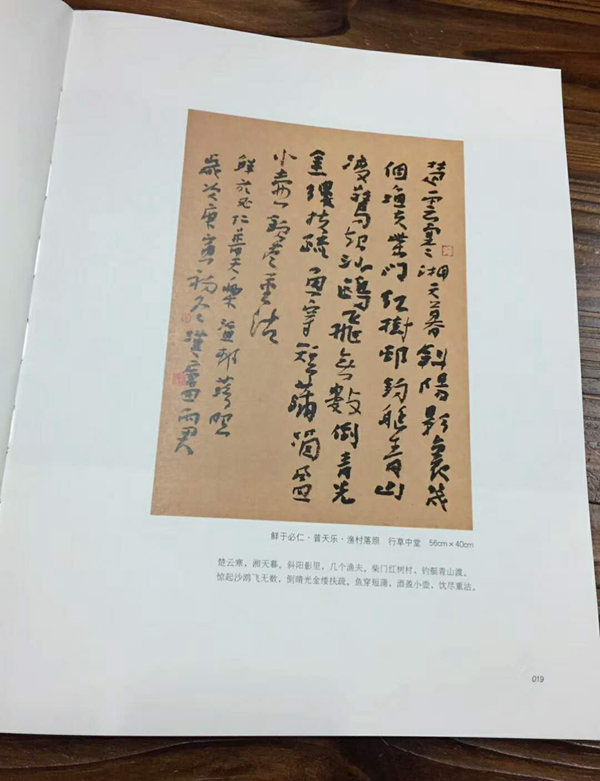 楚云寒湘天暮斜陽影裏几
個漁夫柴门红樹邨钓艇青山
渡驚起沙鸥飞無数倒青光
金缕扶疏鱼穿短蒲酒盈
小壶饮尽重沽
鲜于必仁普天乐渔邨落照
歲次庚寅
鲜于必仁·普天乐·渔村落照 行草中堂 56cm×40cm
楚云寒，湘天暮，斜阳影里，几个渔夫，柴门红树村，钓艇青山渡。
惊起沙鸥飞无数，倒晴光金缕扶疏。鱼穿短蒲，酒盈小壶，饮尽重沽。
019